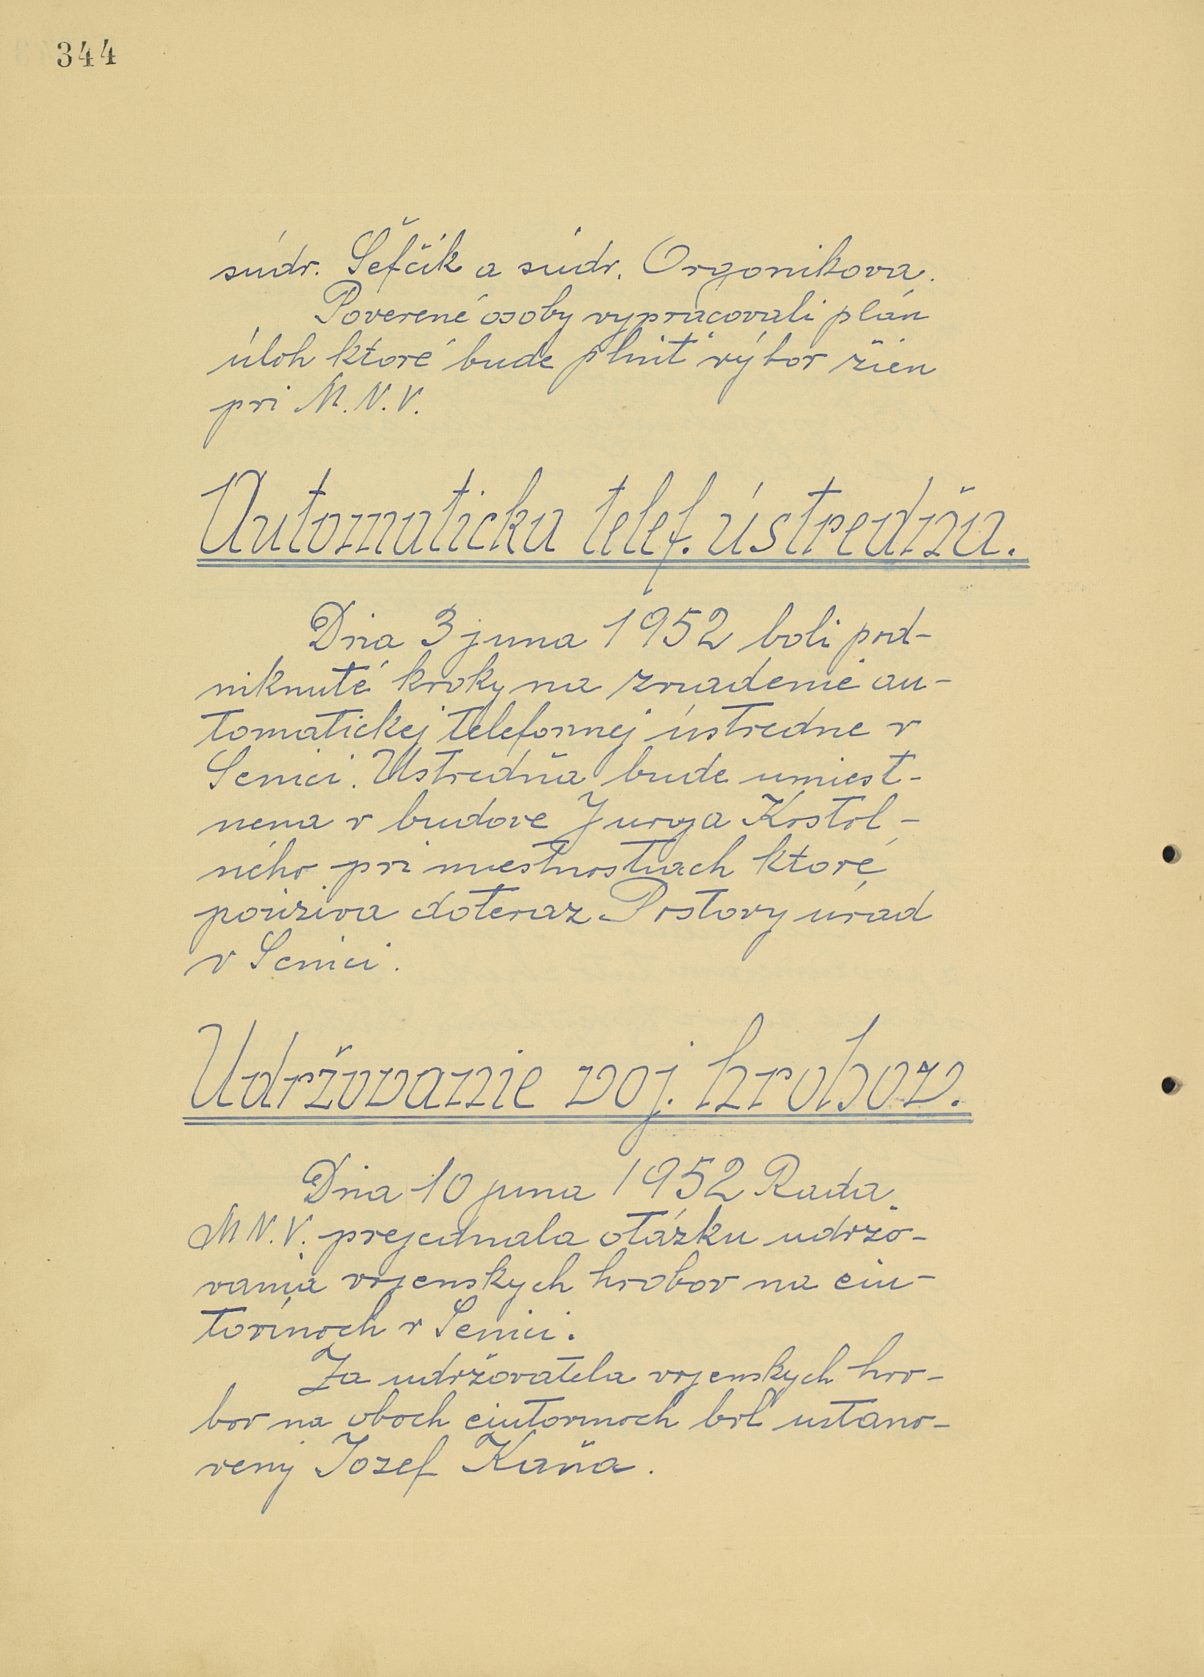 344
súdr. Šefčík a súdr. Orgonikova.
Poverené osoby vypracovali plán
úloh ktoré bude plniť výbor žien
pri M.N.V.
Automaticka telef. ústredňa.
Dňa 3 juna 1952 boli pod-
niknuté kroky na zriadenie au-
tomatickej telefonnej ústredne v
Senici. Ústredňa bude umiest-
nena v budove Juraja Kostol-
ného pri miestnostiach ktoré
použiva doteraz Postovy úrad
v Senici.
Udržovanie voj. hrobov.
Dňa 10 juna 1952 Rada
M N.V. prejednala otázku udržo-
vania vojenskych hrobov na cin-
torínoch v Senici.
Za udržovatela vojenskych hro-
bov na oboch cintorinoch bol ustano-
vený Jozef Kaňa.